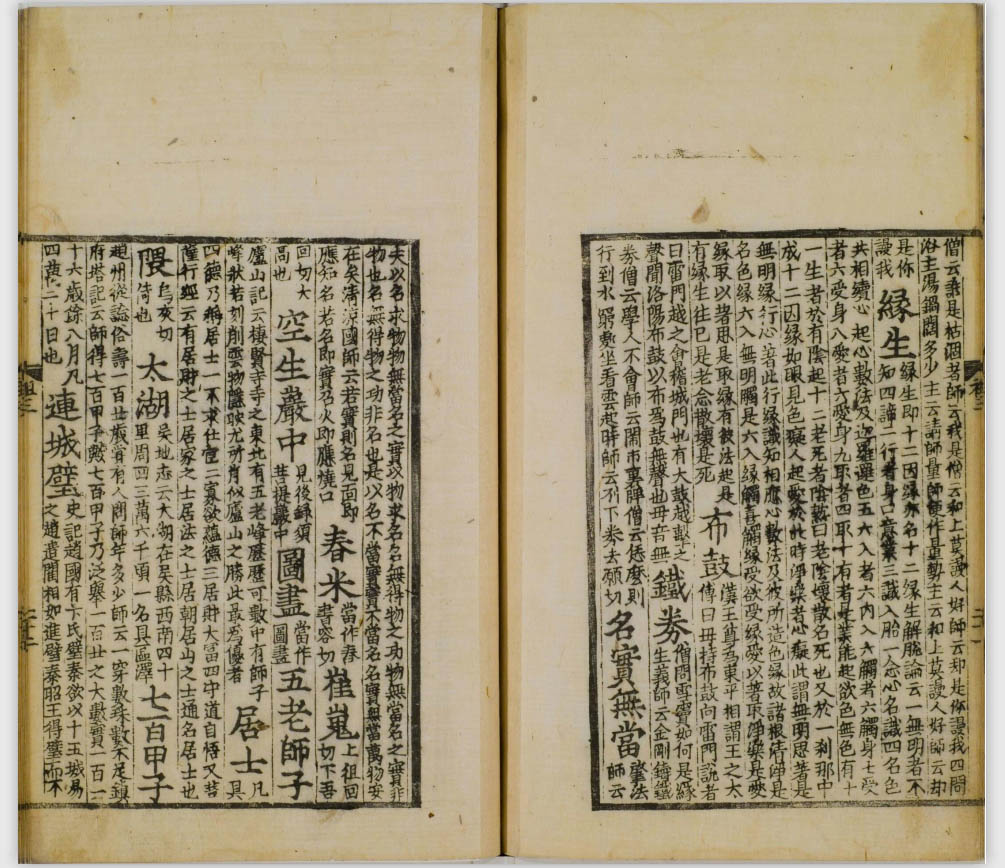 僧云義是枯涸者師云我是僧云和上莫謾人好師云却是你謾我四問
浴主湯鍋闊多少主云請師量師便作量勢主云和上莫謾人好師云却
是你謾我 緣生 緣生即十二因緣亦名十二緣生解脫論云一無明者不知四諦二行者身口意業三識入胎一念心名識四名色
共相續心起心數法及迦羅邏色五六入者六內入六觸者六觸身七受
者六受身八愛者六愛身九取者四取十有者是業能起欲色無色有十
一生者於有陰起十二老死者陰熟曰老陰壞散名死也又於一剎那中
成十二因緣如眼見色癡人起愛於此時淨樂者心癡此謂無明思著是
無明緣行心著此行緣識知相應心數法及彼所造色緣故諸根清淨是
名色緣六入無明觸是六入緣觸喜觸緣受欲受緣愛以著取淨樂是愛
緣取以著思是取緣有彼法起是有緣生住已是老念散壞是死 布鼓 漢王尊為東平相謂王之太傳曰毋持布鼓向雷門說者
曰雷門越之會稽城門也有大鼓越擊之聲聞洛陽布鼓以布為鼓無聲也毋音無 鐵券 僧問雪竇如何是緣生義師云金剛鑄鐵
券僧云學人不會師云閙市裏牌僧云恁麼則行到水窮處坐看雲起時師云不下券去願切 名實無當 肇法師云
夫以名求物物無當名之實以物求名名無得物之功物無當名之實非
物也名無得物之功非名也是以名不當實實不當名名實無當萬物安
在矣清涼國師云若實則名見面即應知名若名即實乃火即應燒口 舂米 當作舂書容切 崔嵬 上徂回切下吾
回切大高也 空生巖中 見後蘇須菩提巖中 圖畫 當作圖畫 五老師子
廬山記云棲賢寺寺之東北有五老峰歷歷可數中有師子峰狀若刻削雲物隱映尤所肖似廬山之勝此最為優者 居士 凡具
四德乃稱居士一不求仕宦二寡欲蘊德三居財大富四守道自悟又菩
薩行經云有居財之士居家之士居法之士居朝居山之士通名居士也
隈 烏灰切倚也 太湖 吳地志云太湖在吳縣西南四十里周四三萬六千頃一名具區澤 七百甲子
趙州從諗俗壽一百廿歲嘗有人問師年多少師云一穿數珠數不足鎮
府塔記云師得七百甲子歟七百甲子乃泛舉一百廿之大數實一百一
十六歲餘八月凡四萬二十日也 連城璧 史記趙國有卞氏璧秦欲以十五城易之趙遣藺相如進璧秦昭王得璧而不